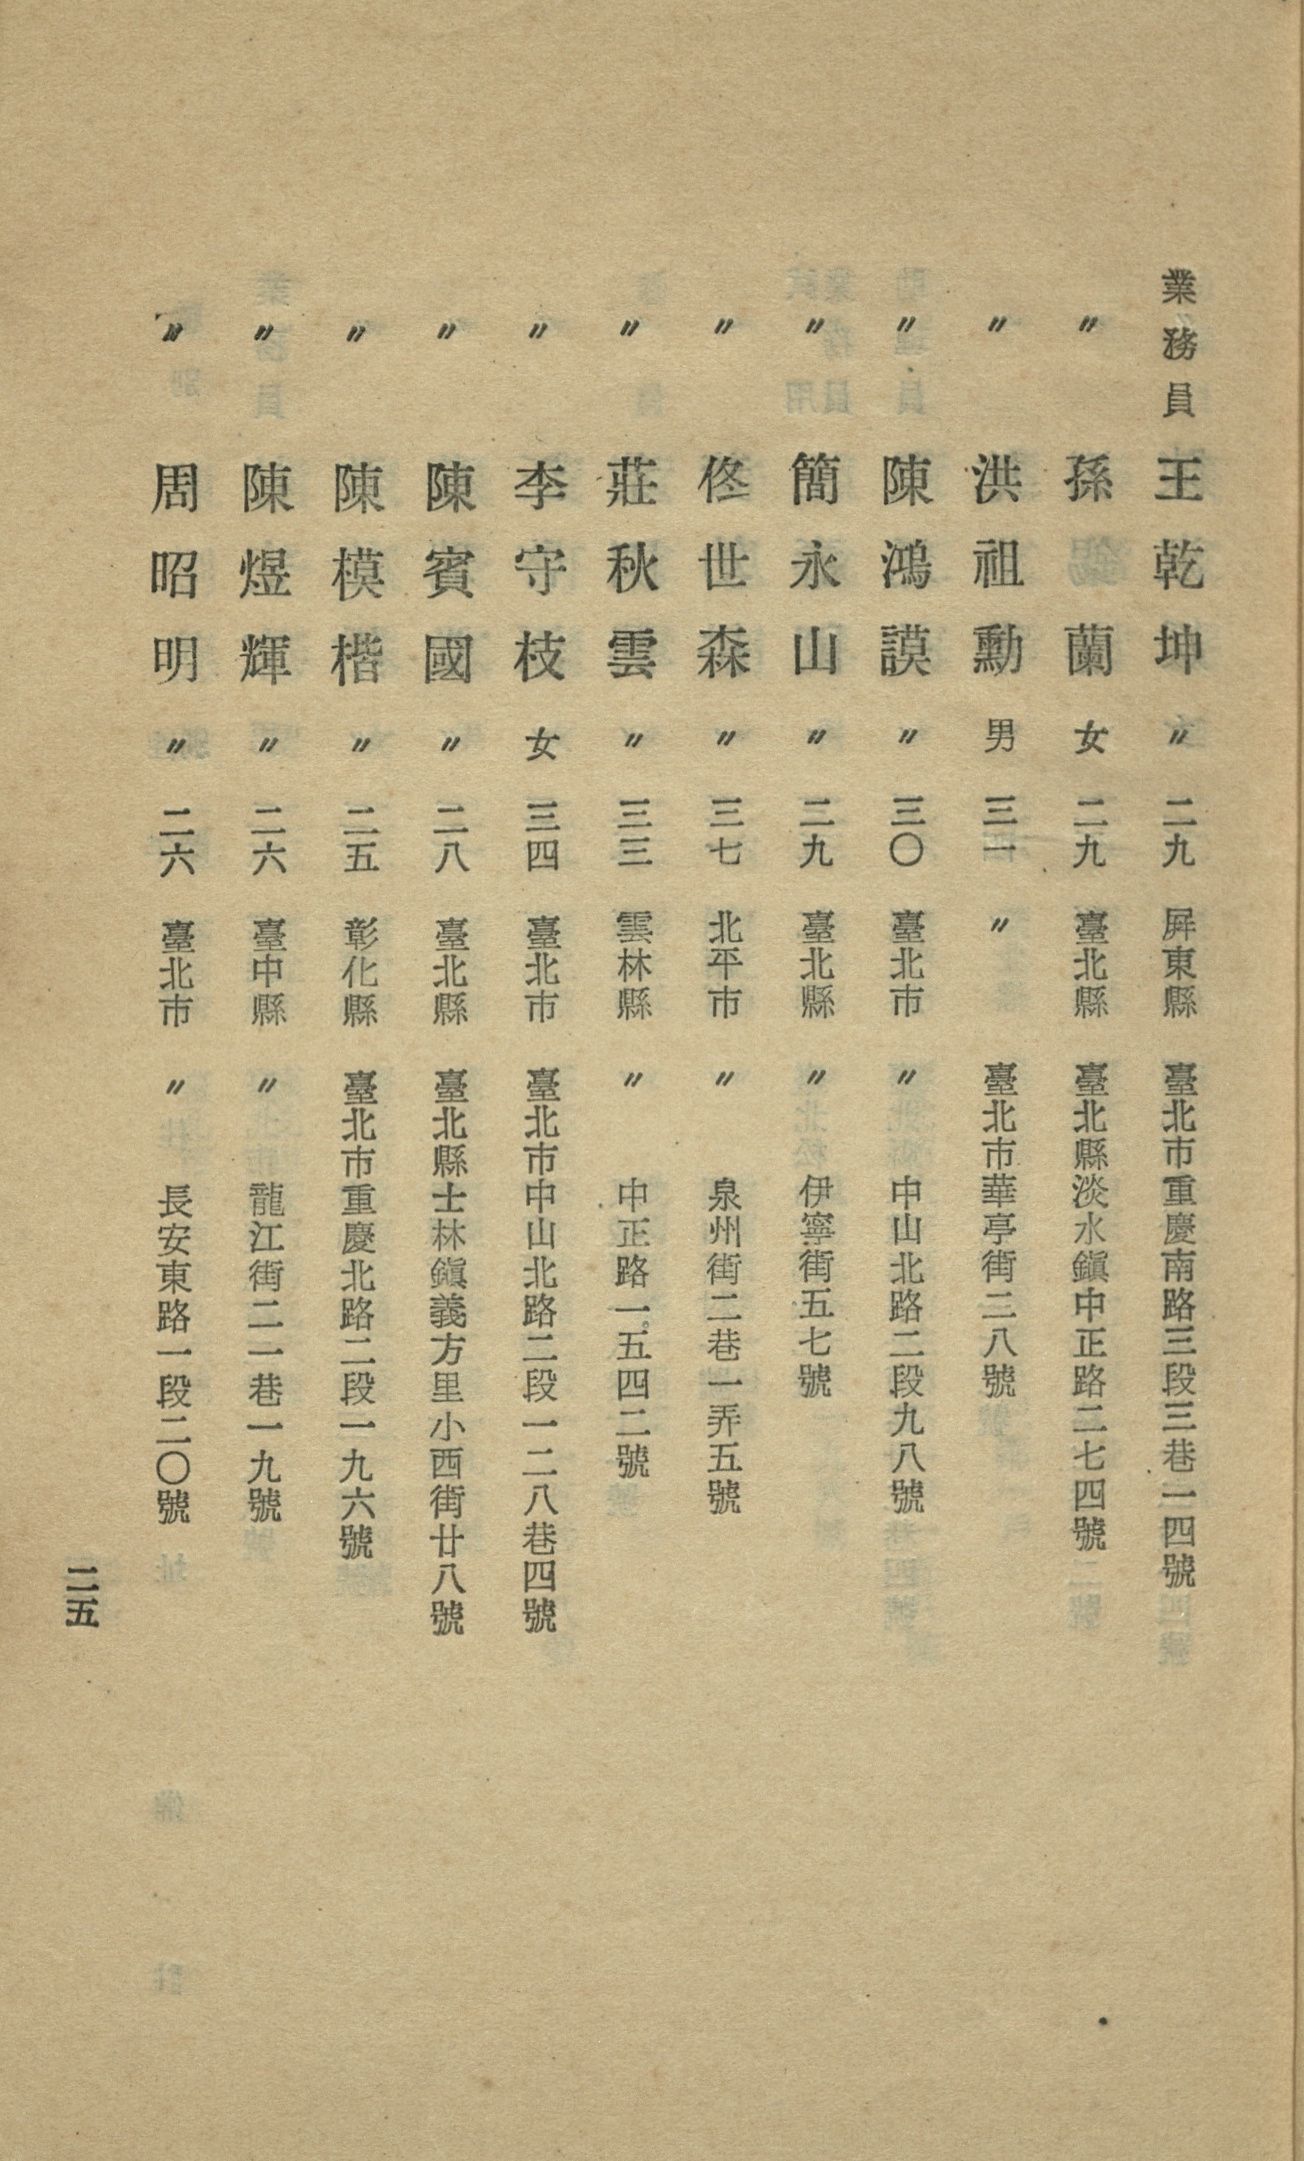 業務員 王乾坤 〃 二九 屏東縣 臺北市重慶南路三段三巷一四號
〃 孫蘭 女 二九 臺北縣 臺北縣淡水鎭中正路二七四號
〃 洪祖勳 男 三一 〃 臺北市華亭街二八號
〃 陳鴻謨 〃 三〇 臺北市 〃 中山北路二段九八號
〃 簡永山 〃 二九 臺北縣 〃 伊寧街五七號
〃 佟世森 〃 三七 北平市 〃 泉州街二巷一弄五號
〃 莊秋雲 〃 三三 雲林縣 〃 中正路一五四二號
〃 李守枝 女 三四 臺北市 臺北市中山北路二段一二八巷四號
〃 陳賓國 〃 二八 臺北縣 臺北縣士林鎭義方里小西街廿八號
〃 陳模楷 〃 二五 彰化縣 臺北市重慶北路二段一九六號
〃 陳煜輝 〃 二六 臺中縣 〃 龍江街二一巷一九號
〃 周昭明 〃 二六 臺北市 〃 長安東路一段二〇號
二五